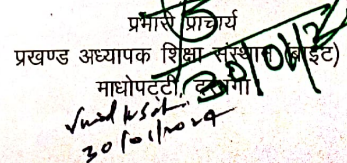 प्रभारी प्राचार्य
प्रखण्ड अध्यापक शिक्षा संस्थान (बाईट)
माधोपटटी, दरभंगा
30/01/2
30/01/2024